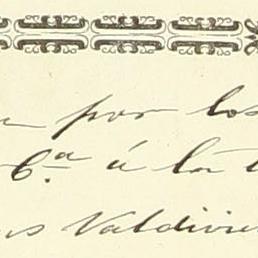 por los
6.ª á la
Valdivie